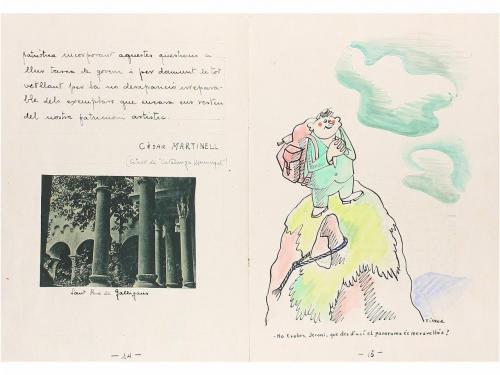 patriòtica incorporant aquestes questions a
llur tasca de govern i per damunt de tot
vetllant per la no desaparició irrepara-
ble dels exemplars que encara ens resten
del nostre patrimoni artístic.
CÈSAR MARTINELL
(de "Catalunya Municipal")
Sant Pere de Galligans
- 14 -
- No trobes, Jeroni, que des d'ací el panorama és meravellós?
- 15 -